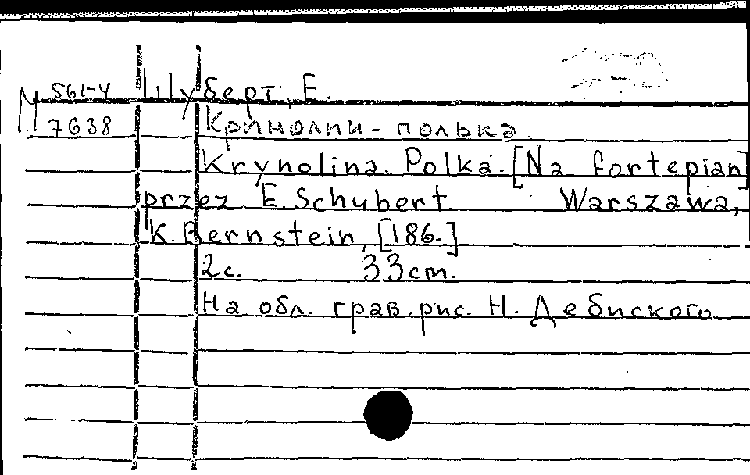 М 561-4 Шуберт, Е.
7638 Кринолин-полька
Krynolina. Polka. [Na fortepian]
przez E. Schubert Warszawa,
K. Bernstein, [186.]
2с. 33cm.
На обл. грав. рис. Н. Дебиского